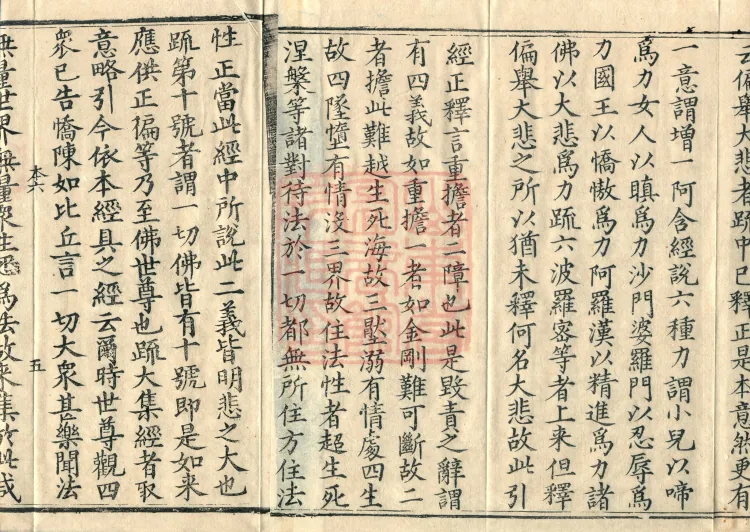 云偏舉大悲者疏中已釋正是本意然更有
一意謂增一阿含經說六種力謂小兒以啼
爲力女人以瞋爲力沙門婆羅門以忍辱爲
力國王以憍慠爲力阿羅漢以精進爲力諸
佛以大悲爲力疏六波羅密等者上來但釋
偏舉大悲之所以猶未釋何名大悲故此引
經正釋言重擔者二障也此是毀責之辭謂
有四義故如重擔一者如金剛難可斷故二
者擔此難越生死海故三壓溺有情處四生
故四墜墮有情沒三界故住法性者超生死
涅槃等諸對待法於一切都無所住方住法
性正當此經中所說此二義皆明悲之大也
疏第十號者謂一切佛皆有十號即是如來
應供正徧等乃至佛世尊也疏大集經者取
意略引今依本經具之經云爾時世尊觀四
衆已告憍陳如比丘言一切大衆甚樂聞法
本六
五
無量世界無量衆生悉爲法故来集於此或